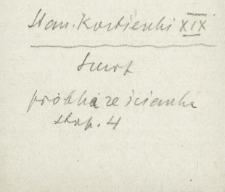 Stan. Kostienki XIX
Smrt
próbka ze ścianki
stop. 4